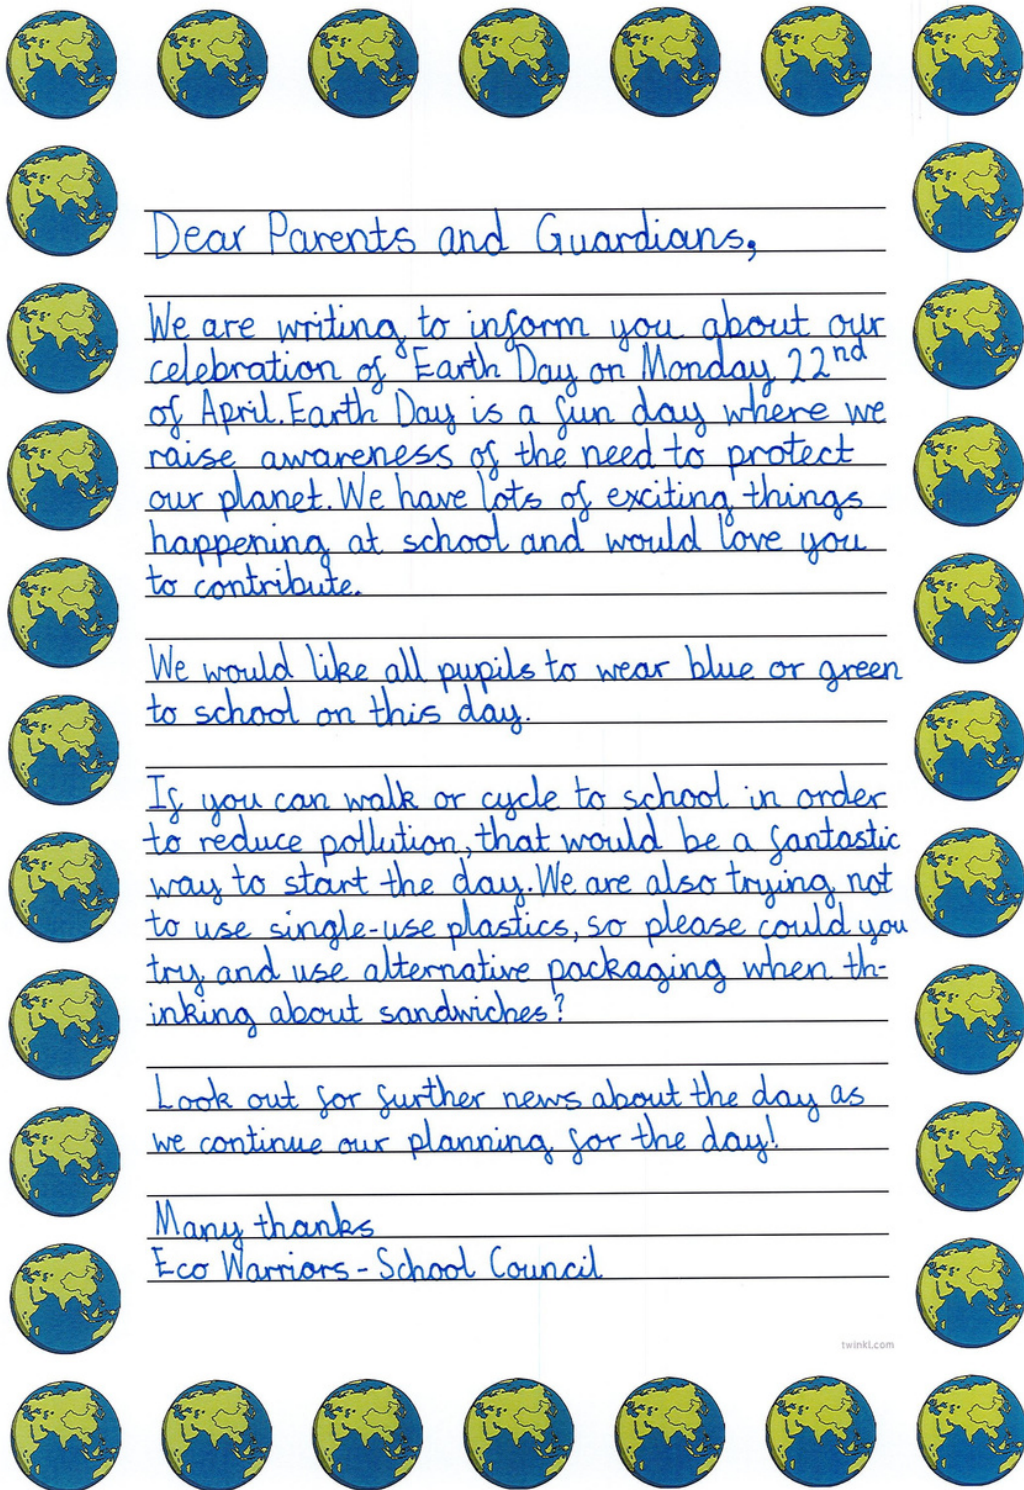 Dear Parents and Guardians,
We are writing to inform you about our
celebration of Earth Day on Monday 22nd
of April. Earth Day is a fun day where we
raise awareness of the need to protect
our planet. We have lots of exciting things
happening at school and would love you
to contribute.
We would like all pupils to wear blue or green
to school on this day.
If you can walk or cycle to school in order
to reduce pollution, that would be a fantastic
way to start the day. We are also trying not
to use single-use plastics, so please could you
try and use alternative packaging when th-
inking about sandwiches?
Look out for further news about the day as
we continue our planning for the day!
Many thanks
Eco Warriors - School Council
twinkl.com